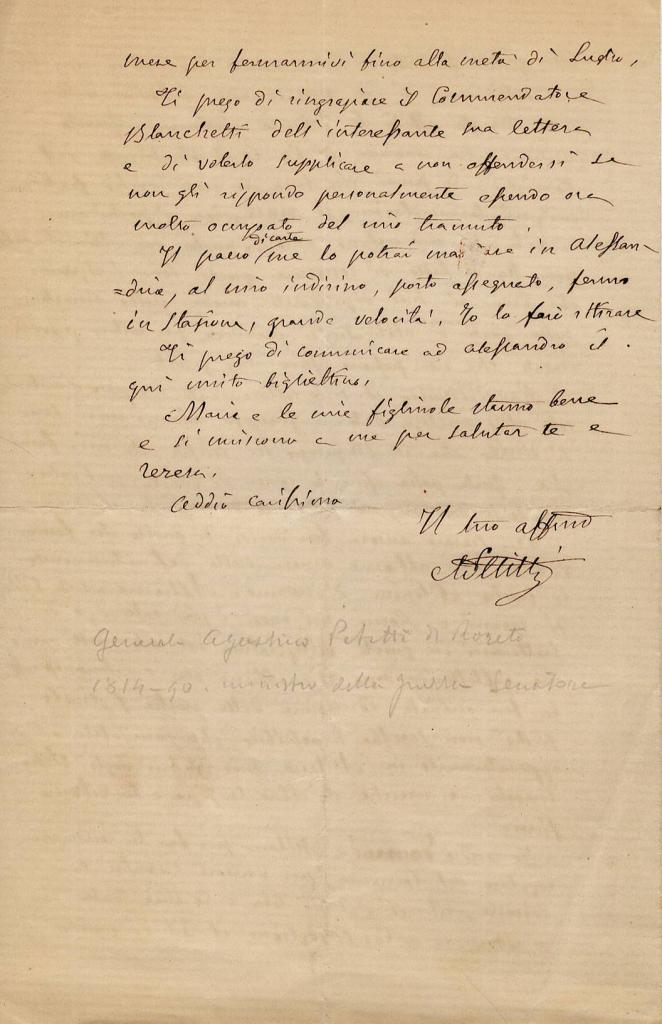 mese per fermarmivi fino alla metà di Luglio,
Ti prego di ringraziare il Commendatore
Blanchetti dell'interessante sua lettera
e di volerlo supplicare a non offendersi se
non gli rispondo personalmente essendo ora
molto occupato del mio tramuto.
di carte
Il pacco me lo potrai mandare in Alessan-
=dria, al mio indirizzo, porto assegnato, fermo
in Stazione, grande velocità, Io lo farò ritirare
Ti prego di comunicare ad Alessandro il
qui unito bigliettino,
Maria e le mie figliuole stanno bene
e si uniscono a me per salutar te e
Teresa,
Addio carissimo
Il tuo affmo
Generale Agostino Petitti di Roreto
1814-90. ministro della guerra Senatore